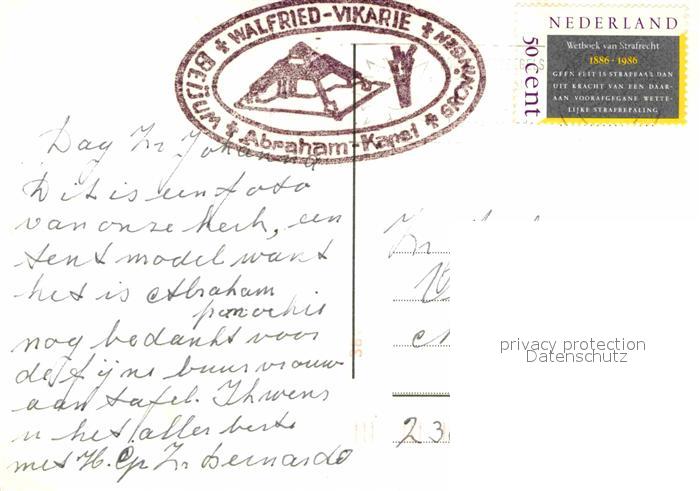 WALFRIED-VIKARIE
BEIJUM
GRONINGEN
Abraham-Kapel
NEDERLAND
50 cent
Wetboek van Strafrecht
1886 - 1986
GEEN FEIT IS STRAFBAAR DAN
UIT KRACHT VAN EEN DAAR-
AAN VOORAFGEGANE WETTE-
LIJKE STRAFBEPALING
Dag Zr Johanna
Dit is een foto
van onze kerk, een
tent model want
het is Abraham
parochie
nog bedankt voor
de fijne buurvrouw
aan tafel. Ik wens
u het aller beste
met H. Cp Zr Bernardo
Zr
23
privacy protection
Datenschutz